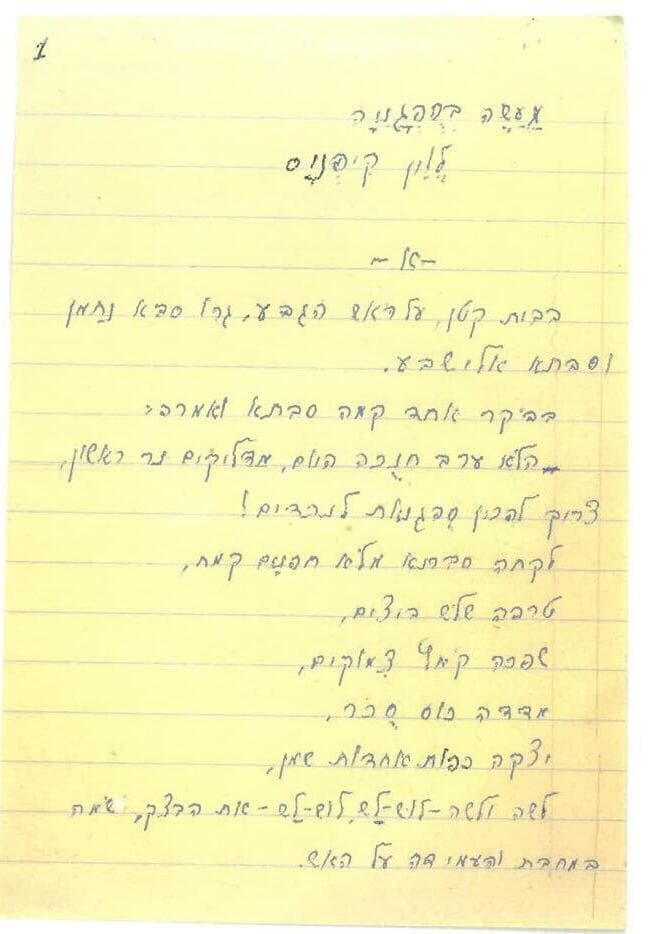 1
מַעֲשֶׂה בְּסֻפְגָּנִיָּה
לֵוִין קִיפְּנִיס
- א -
בבית קטן, על ראש הגבע, גרו סבא נַחמן
וסבתא אלישבע.
בבֹקר אחד קמה סבתא ואמרה:
- הלא ערב חנֻכה היום, מדליקים נר ראשון,
צריך להכין סֻפגניות לנכדים!
לקחה סבתא מלֹא חפנַים קמח,
טרפה שלש ביצים,
שפכה קֹמץ צִמוקים,
מדדה כוס סֻכר,
יצקה כפות אחדות שמן,
לשה ולשה - לוש-לָש, לוש-לָש - את הבצק, שׂמה
במחבת והעמידה על האש.